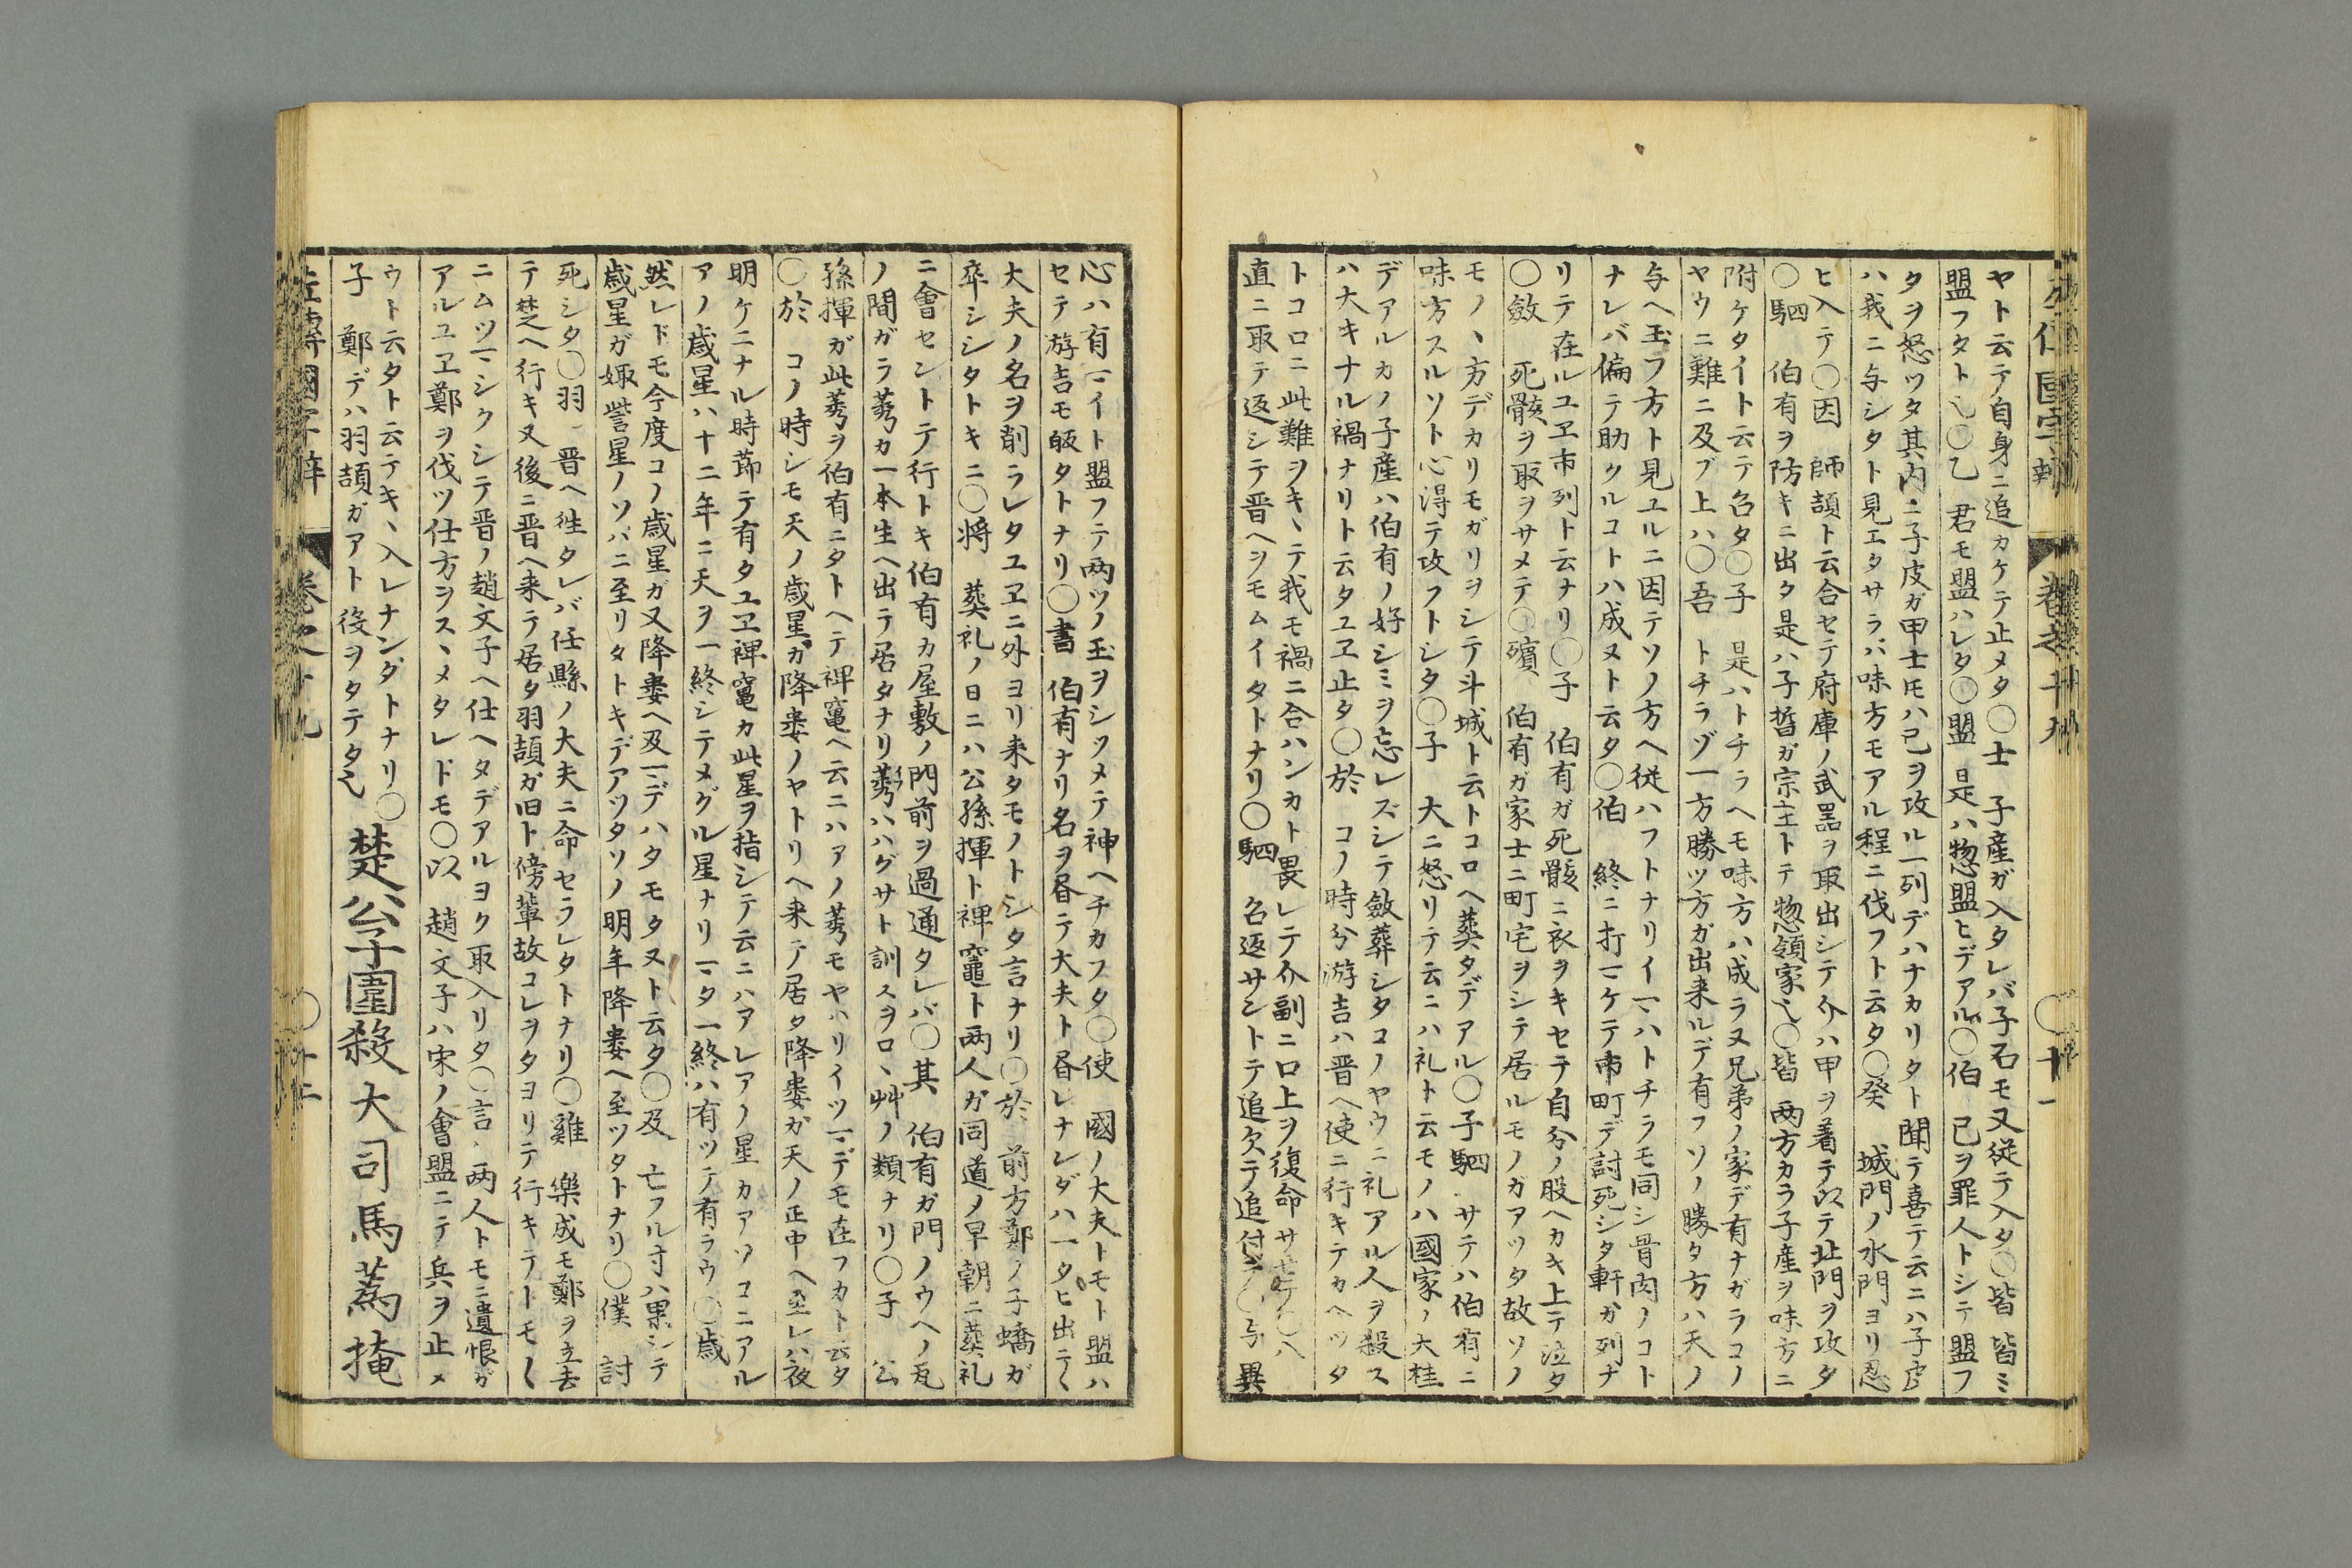 ヤト云テ自身ニ追カケテ止メタ〇士 子産ガ入タレバ子石モ又従テ入タ〇皆 皆ミ
盟フタト乀〇乙 君モ盟ハレタ〇盟 是ハ惣盟ヒデアル〇伯 已ヲ罪人トシテ盟フ
タヲ怒ツタ其内ニ子皮ガ甲士ハ己ヲ攻ル一列デハナカリタト聞テ喜テ云ニハ子皮
ハ我ニ与シタト見エタサラバ味方モアル程ニ伐フト云タ〇癸 城門ノ水門ヨリ忍
ヒ入テ〇因 師頡ト云合セテ府庫ノ武器ヲ取出シテ介ハ甲ヲ着テ以テ北門ヲ攻タ
〇駟 伯有ヲ防キニ出タ是ハ子晳ガ宗主トテ惣領家乀〇皆 両方カラ子産ヲ味方ニ
附ケタイト云テ召タ〇子 是ハトチラヘモ味方ハ成ラヌ兄弟ノ家デ有ナガラコノ
ヤウニ難ニ及ブ上ハ〇吾 トチラゾ一方勝ツ方ガ出来ルデ有フソノ勝タ方ハ天ノ
与ヘ玉フ方ト見ユルニ因テソノ方ヘ従ハフトナリイマハトチラモ同シ骨肉ノコト
ナレバ偏テ助クルコトハ成ヌト云タ〇伯 終ニ打マケテ市町デ討死シタ軒ガ列ナ
リテ在ルユヱ市列ト云ナリ〇子 伯有ガ死骸ニ衣ヲキセテ自分ノ股ヘカキ上テ泣タ
〇斂 死骸ヲ取ヲサメテ〇殯 伯有ガ家士ニ町宅ヲシテ居ルモノガアツタ故ソノ
モノヽ方デカリモガリヲシテ斗城ト云トコロヘ葬タデアル〇子駟 サテハ伯有ニ
味方スルソト心得テ攻フトシタ〇子 大ニ怒リテ云ニハ礼ト云モノハ國家ノ大柱
デアルカノ子産ハ伯有ノ好シミヲ忘レズシテ斂葬シタコノヤウニ礼アル人ヲ殺ス
ハ大キナル禍ナリト云タユヱ止タ〇於 コノ時分游吉ハ晋ヘ使ニ行キテカヘツタ
トコロニ此難ヲキヽテ我モ禍ニ合ハンカト畏レテ介副ニ口上ヲ復命サセテ〇八
直ニ取テ返シテ晋ヘヲモムイタトナリ〇駟 召返サントテ追欠テ追付テ〇与 異
心ハ有マイト盟フテ両ツノ玉ヲシツメテ神ヘチカフタ〇使 國ノ大夫トモト盟ハ
セテ游吉モ皈タトナリ〇書 伯有ナリ名ヲ昏テ大夫ト昏レナンダハ一タヒ出テ
大夫ノ名ヲ削ラレタユヱニ外ヨリ来タモノトシタ言ナリ〇於 前方鄭ノ子蟜ガ
卒シシタトキニ〇將 葬礼ノ日ニハ公孫揮ト裨竈ト両人ガ同道ノ早朝ニ葬礼
ニ會セントテ行トキ伯有カ屋敷ノ門前ヲ過通タレバ〇其 伯有ガ門ノウヘノ瓦
ノ間ガラ莠カ一本生ヘ出テ居タナリ莠ハハグサト訓スヲロヽ艸ノ類ナリ〇子 公
孫揮ガ此莠ヲ伯有ニタトヘテ裨竈ヘ云ニハアノ莠モヤハリイツマデモ在フカト云タ
〇於 コノ時シモ天ノ歳星ガ降婁ノヤトリヘ来テ居タ降婁ガ天ノ正中ヘ至レハ夜
明ケニナル時節テ有タユヱ裨竈カ此星ヲ指シテ云ニハアレアノ星カアソコニアル
アノ歳星ハ十二年ニ天ヲ一終シテメグル星ナリマタ一終ハ有ツテ有ラウ〇歳
然レドモ今度コノ歳星ガ又降婁ヘ及マデハタモタヌト云タ〇及 亡フル寸ハ果シテ
歳星ガ娵訾星ノソバニ至リタトキデアツタソノ明年降婁ヘ至ツタトナリ〇僕 討
死シタ〇羽 晋ヘ徃タレバ任縣ノ大夫ニ命セラレタトナリ〇雞 樂成モ鄭ヲ立去
テ楚ヘ行キ又後ニ晋ヘ来テ居タ羽頡ガ旧ト傍輩故コレヲタヨリテ行キテトモ〱
ニムツマシクシテ晋ノ趙文子ヘ仕ヘタデアルヨク取入リタ〇言 両人トモニ遺恨ガ
アルユヱ鄭ヲ伐ツ仕方ヲスヽメタレドモ〇以 趙文子ハ宋ノ會盟ニテ兵ヲ止メ
ウト云タト云テキヽ入レナンダトナリ〇
子 鄭デハ羽頡ガアト役ヲタテタ乀 楚公子圍殺大司馬蒍掩